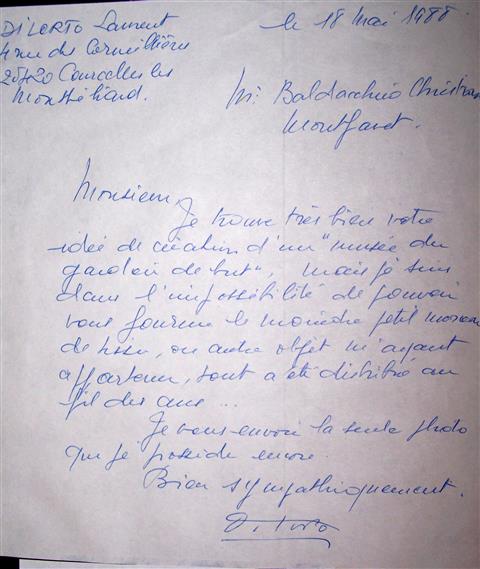 DILORTO Laurent
le 18 Mai 1988.
4 rue des
25420 Courcelles les
Montbéliard.
Mr Baldacchino Christian
Montfavet.
Monsieur,
Je trouve très bien votre
idée de création d'un "musée du
gardien de but", mais je suis
dans l'impossibilité de pouvoir
vous fournir le moindre petit morceau
de tissu, ou autre objet m'ayant
appartenu, tout a été distribué au
fil des ans...
Je vous envoie la seule photo
que je possède encore.
Bien sympathiquement.